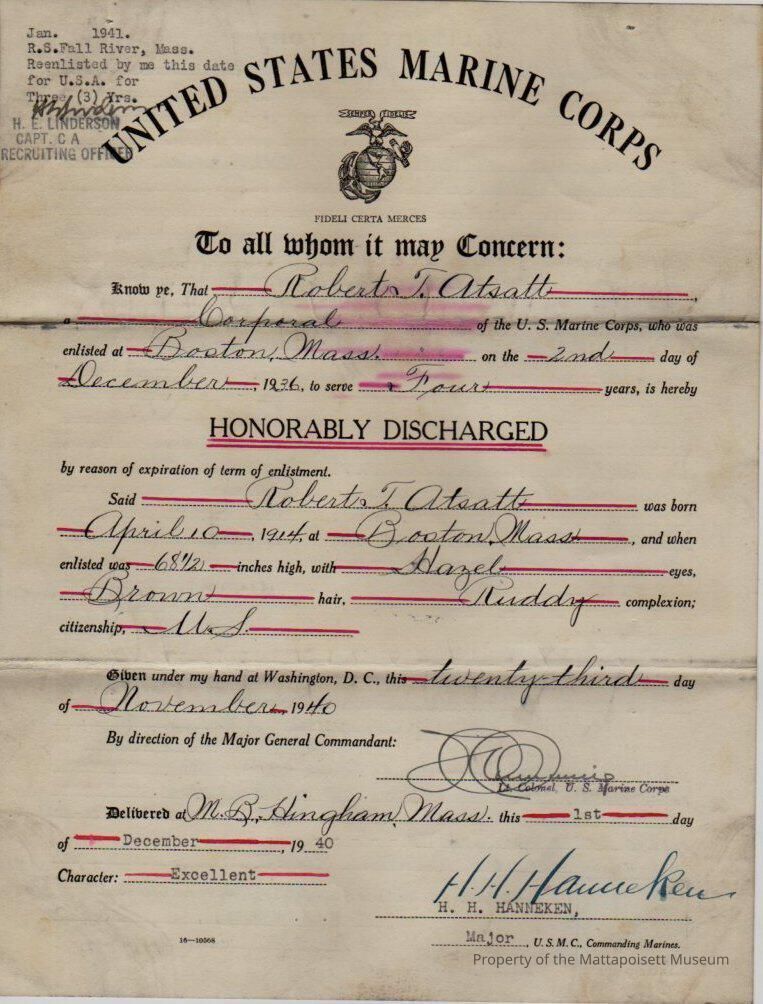 Jan. 1941.
R.S.Fall River, Mass.
Reenlisted by me this date
for U.S.A. for
Three (3) Yrs.
H. E. LINDERSON
CAPT. C A
RECRUITING OFFICER
UNITED STATES MARINE CORPS
SEMPER FIDELIS
FIDELI CERTA MERCES
To all whom it may Concern:
Know ye, That Robert T. Atsatt,
a Corporal of the U. S. Marine Corps, who was
enlisted at Boston, Mass. on the 2nd day of
December, 1936, to serve Four years, is hereby
HONORABLY DISCHARGED
by reason of expiration of term of enlistment.
Said Robert T. Atsatt was born
April 10, 1914, at Boston, Mass., and when
enlisted was 68½ inches high, with Hazel eyes,
Brown hair, Ruddy complexion;
citizenship, U.S.
Given under my hand at Washington, D. C., this twenty-third day
of November, 1940
By direction of the Major General Commandant:
Lt. Colonel, U. S. Marine Corps
Delivered at M.B., Hingham, Mass. this 1st day
of December, 1940
Character: Excellent
H.H. Hanneken
H. H. HANNEKEN,
Major, U.S.M.C., Commanding Marines.
16—10568
Property of the Mattapoisett Museum